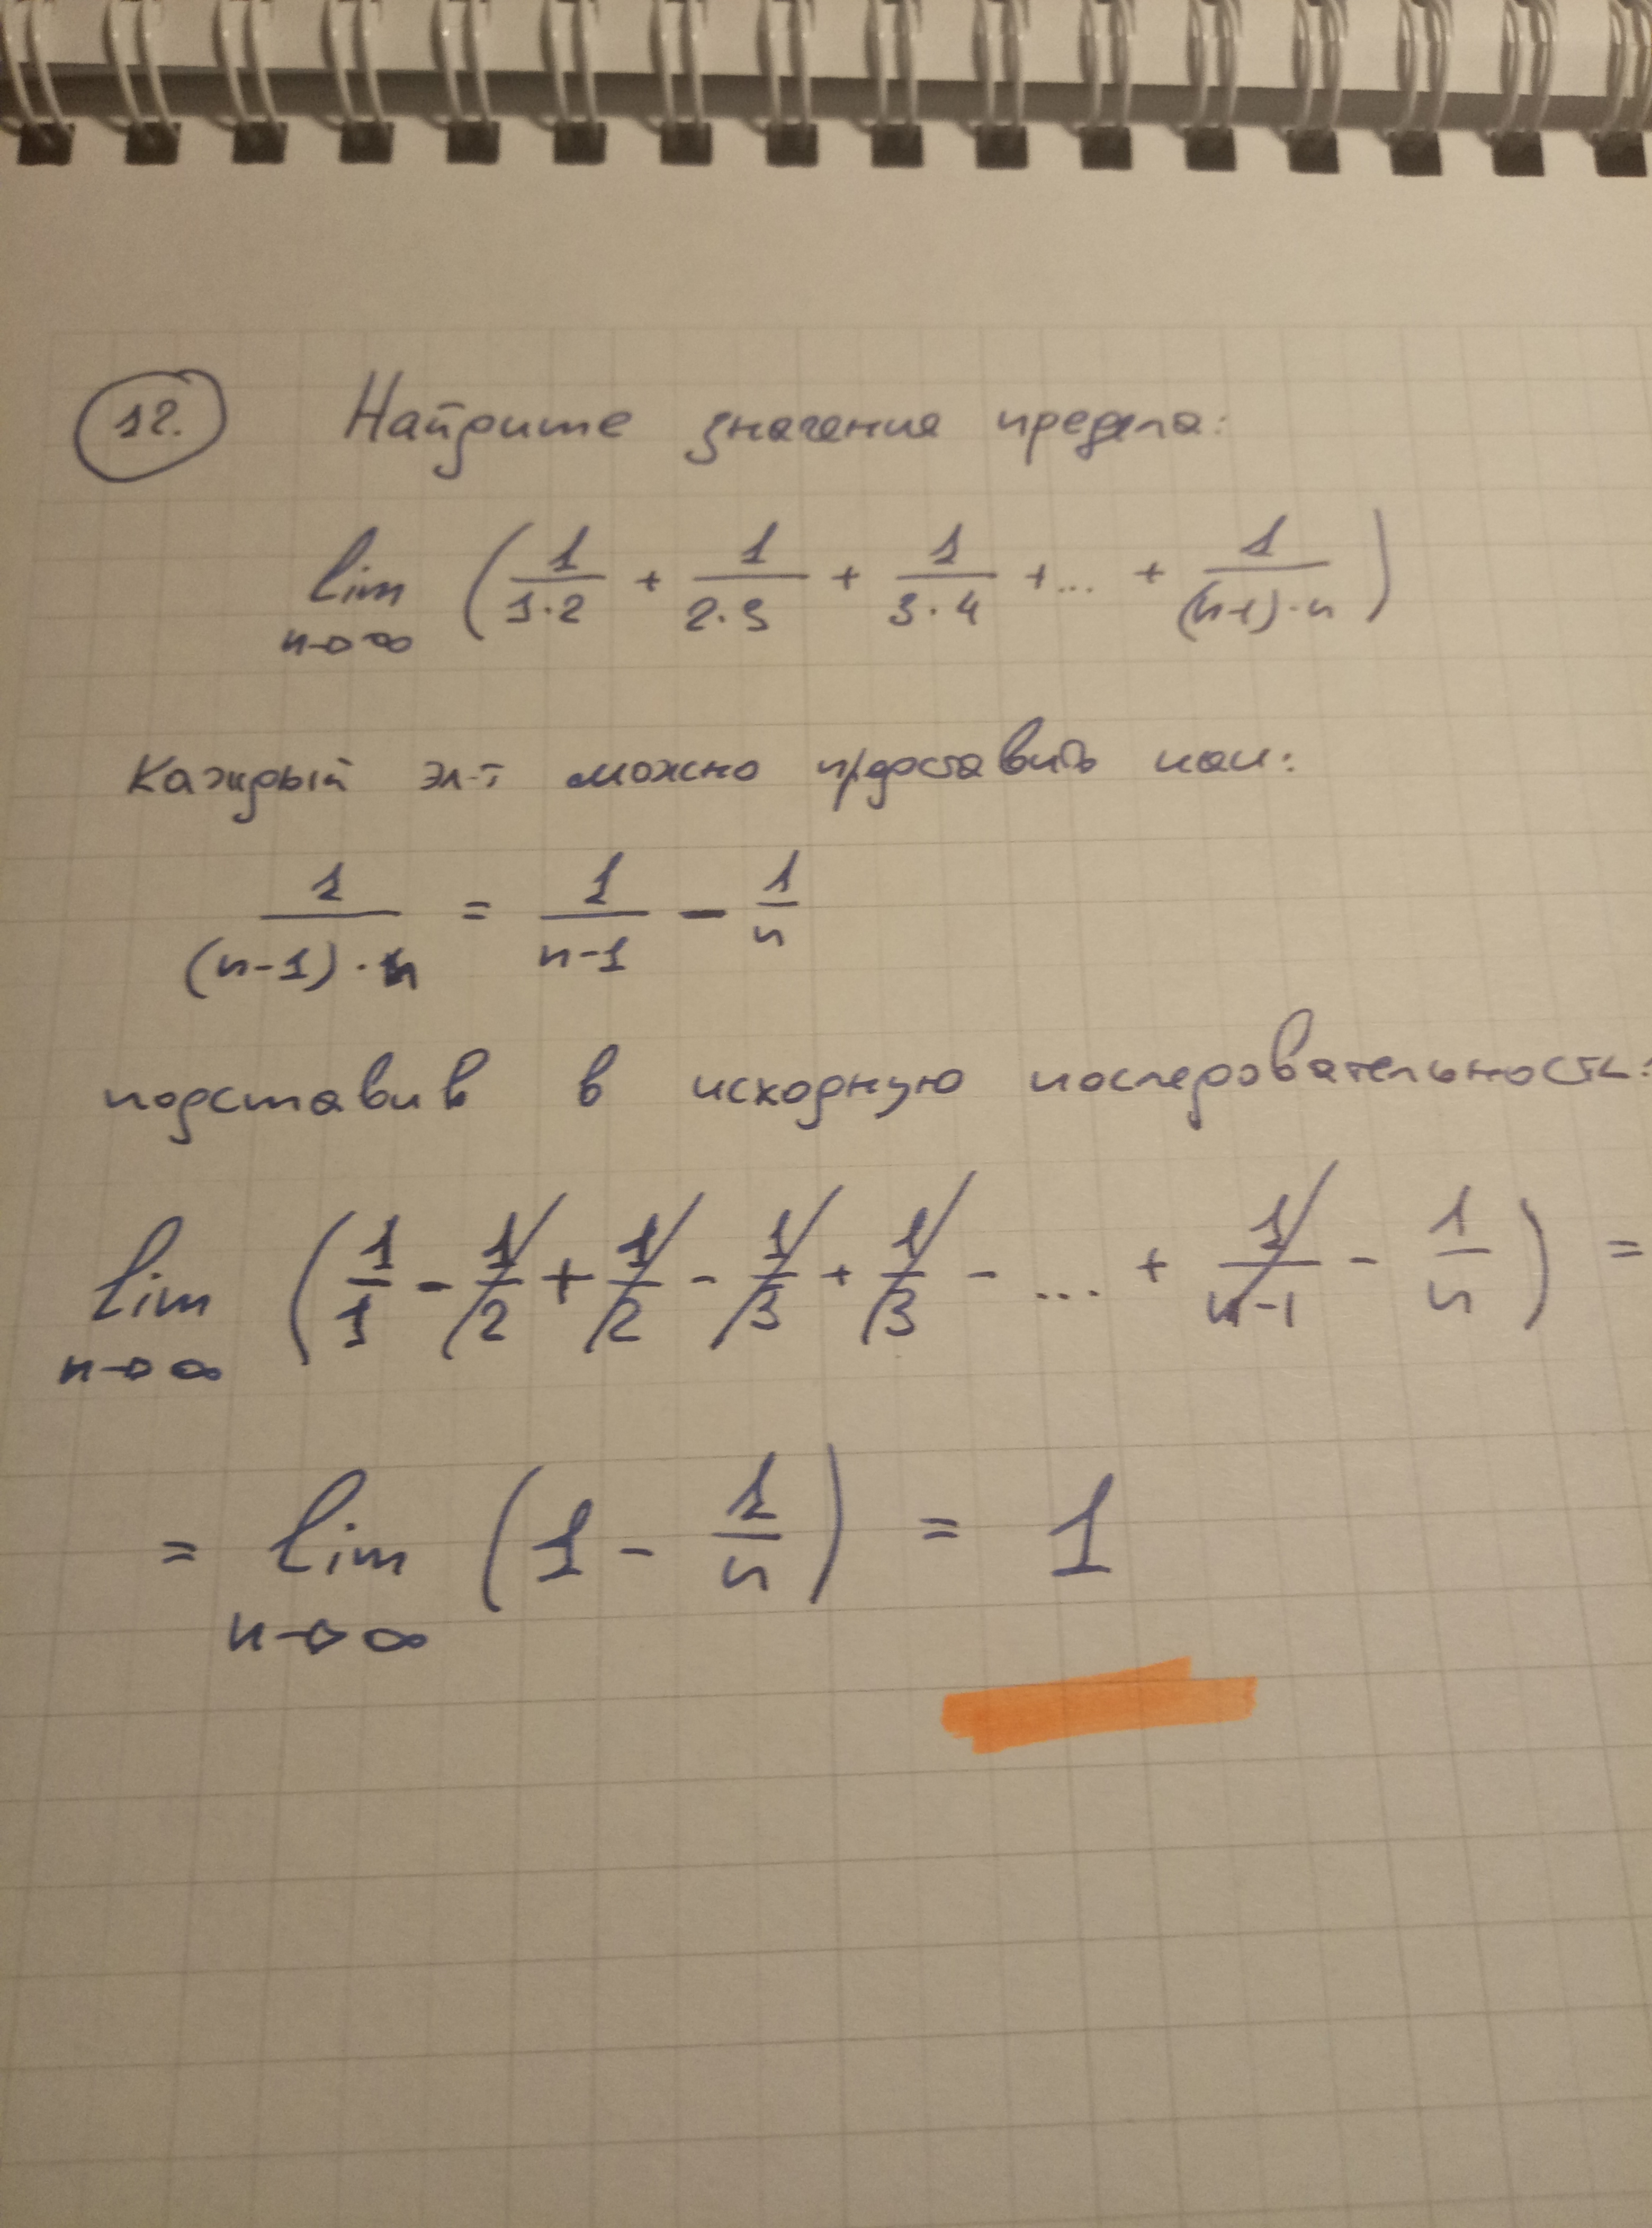 12. Найдите значение предела:
lim n→∞ (1/(1·2) + 1/(2·3) + 1/(3·4) + ... + 1/((n-1)·n))
Каждый эл-т можно предоставить как:
1/((n-1)·n) = 1/(n-1) - 1/n
подставив в исходную последовательность:
lim n→∞ (1/1 - 1/2 + 1/2 - 1/3 + 1/3 - ... + 1/(n-1) - 1/n) =
= lim n→∞ (1 - 1/n) = 1